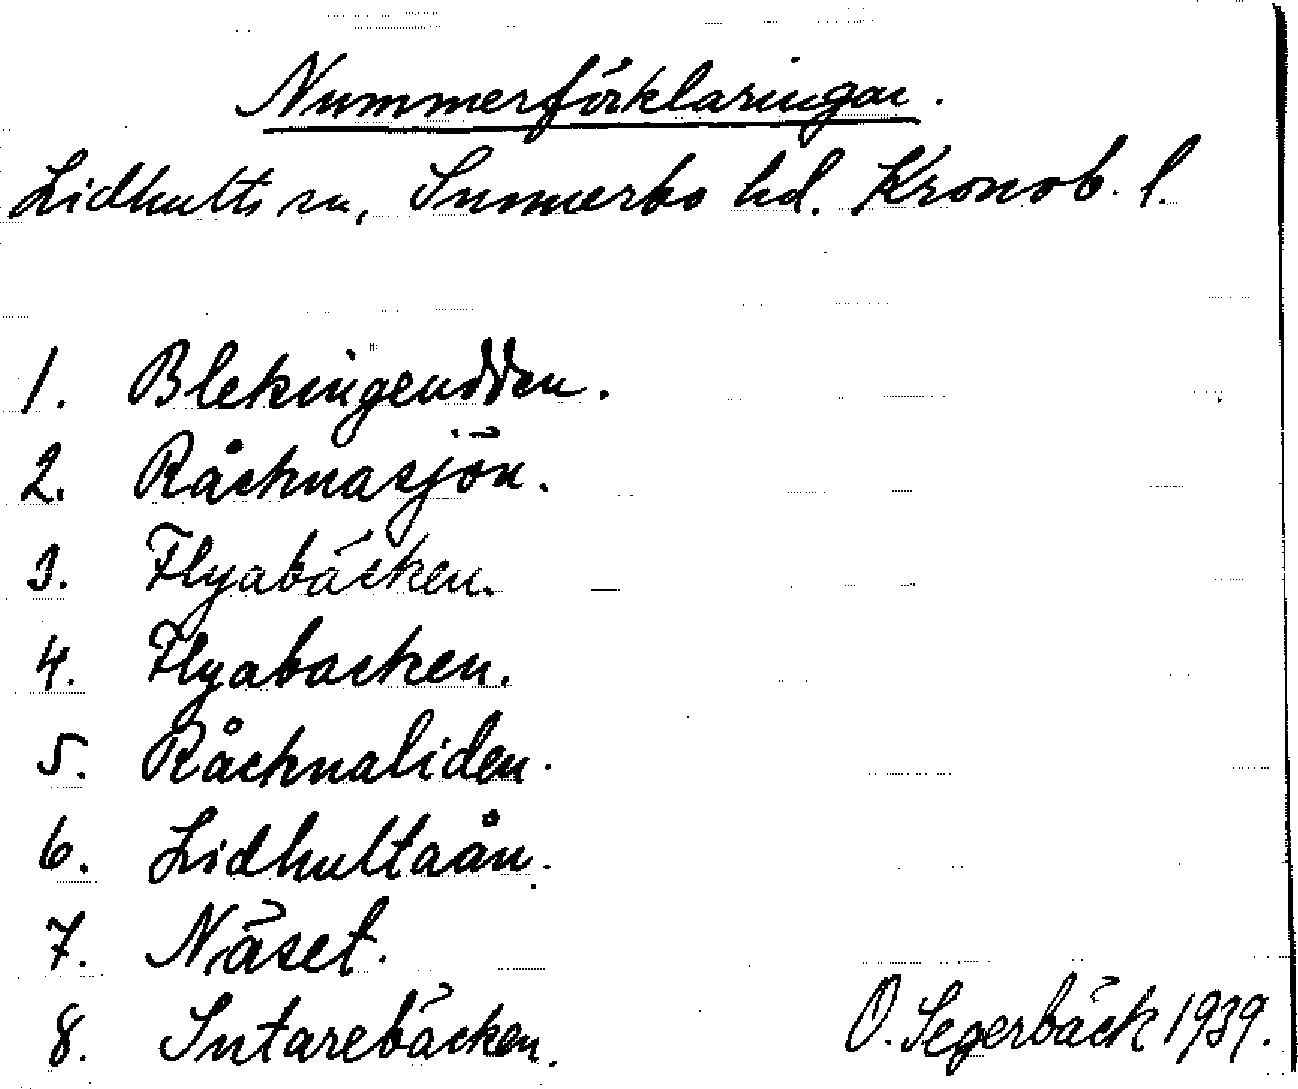 Nummerförklaringar.
Lidhults sn, Sunnerbo hd. Kronob. l.
1. Blekingeudden.
2. Råcknasjön.
3. Flyabäcken.
4. Flyabacken.
5. Råcknaliden.
6. Lidhultaån.
7. Näset.
8. Sutarebäcken.
O. Segerbäck 1939.